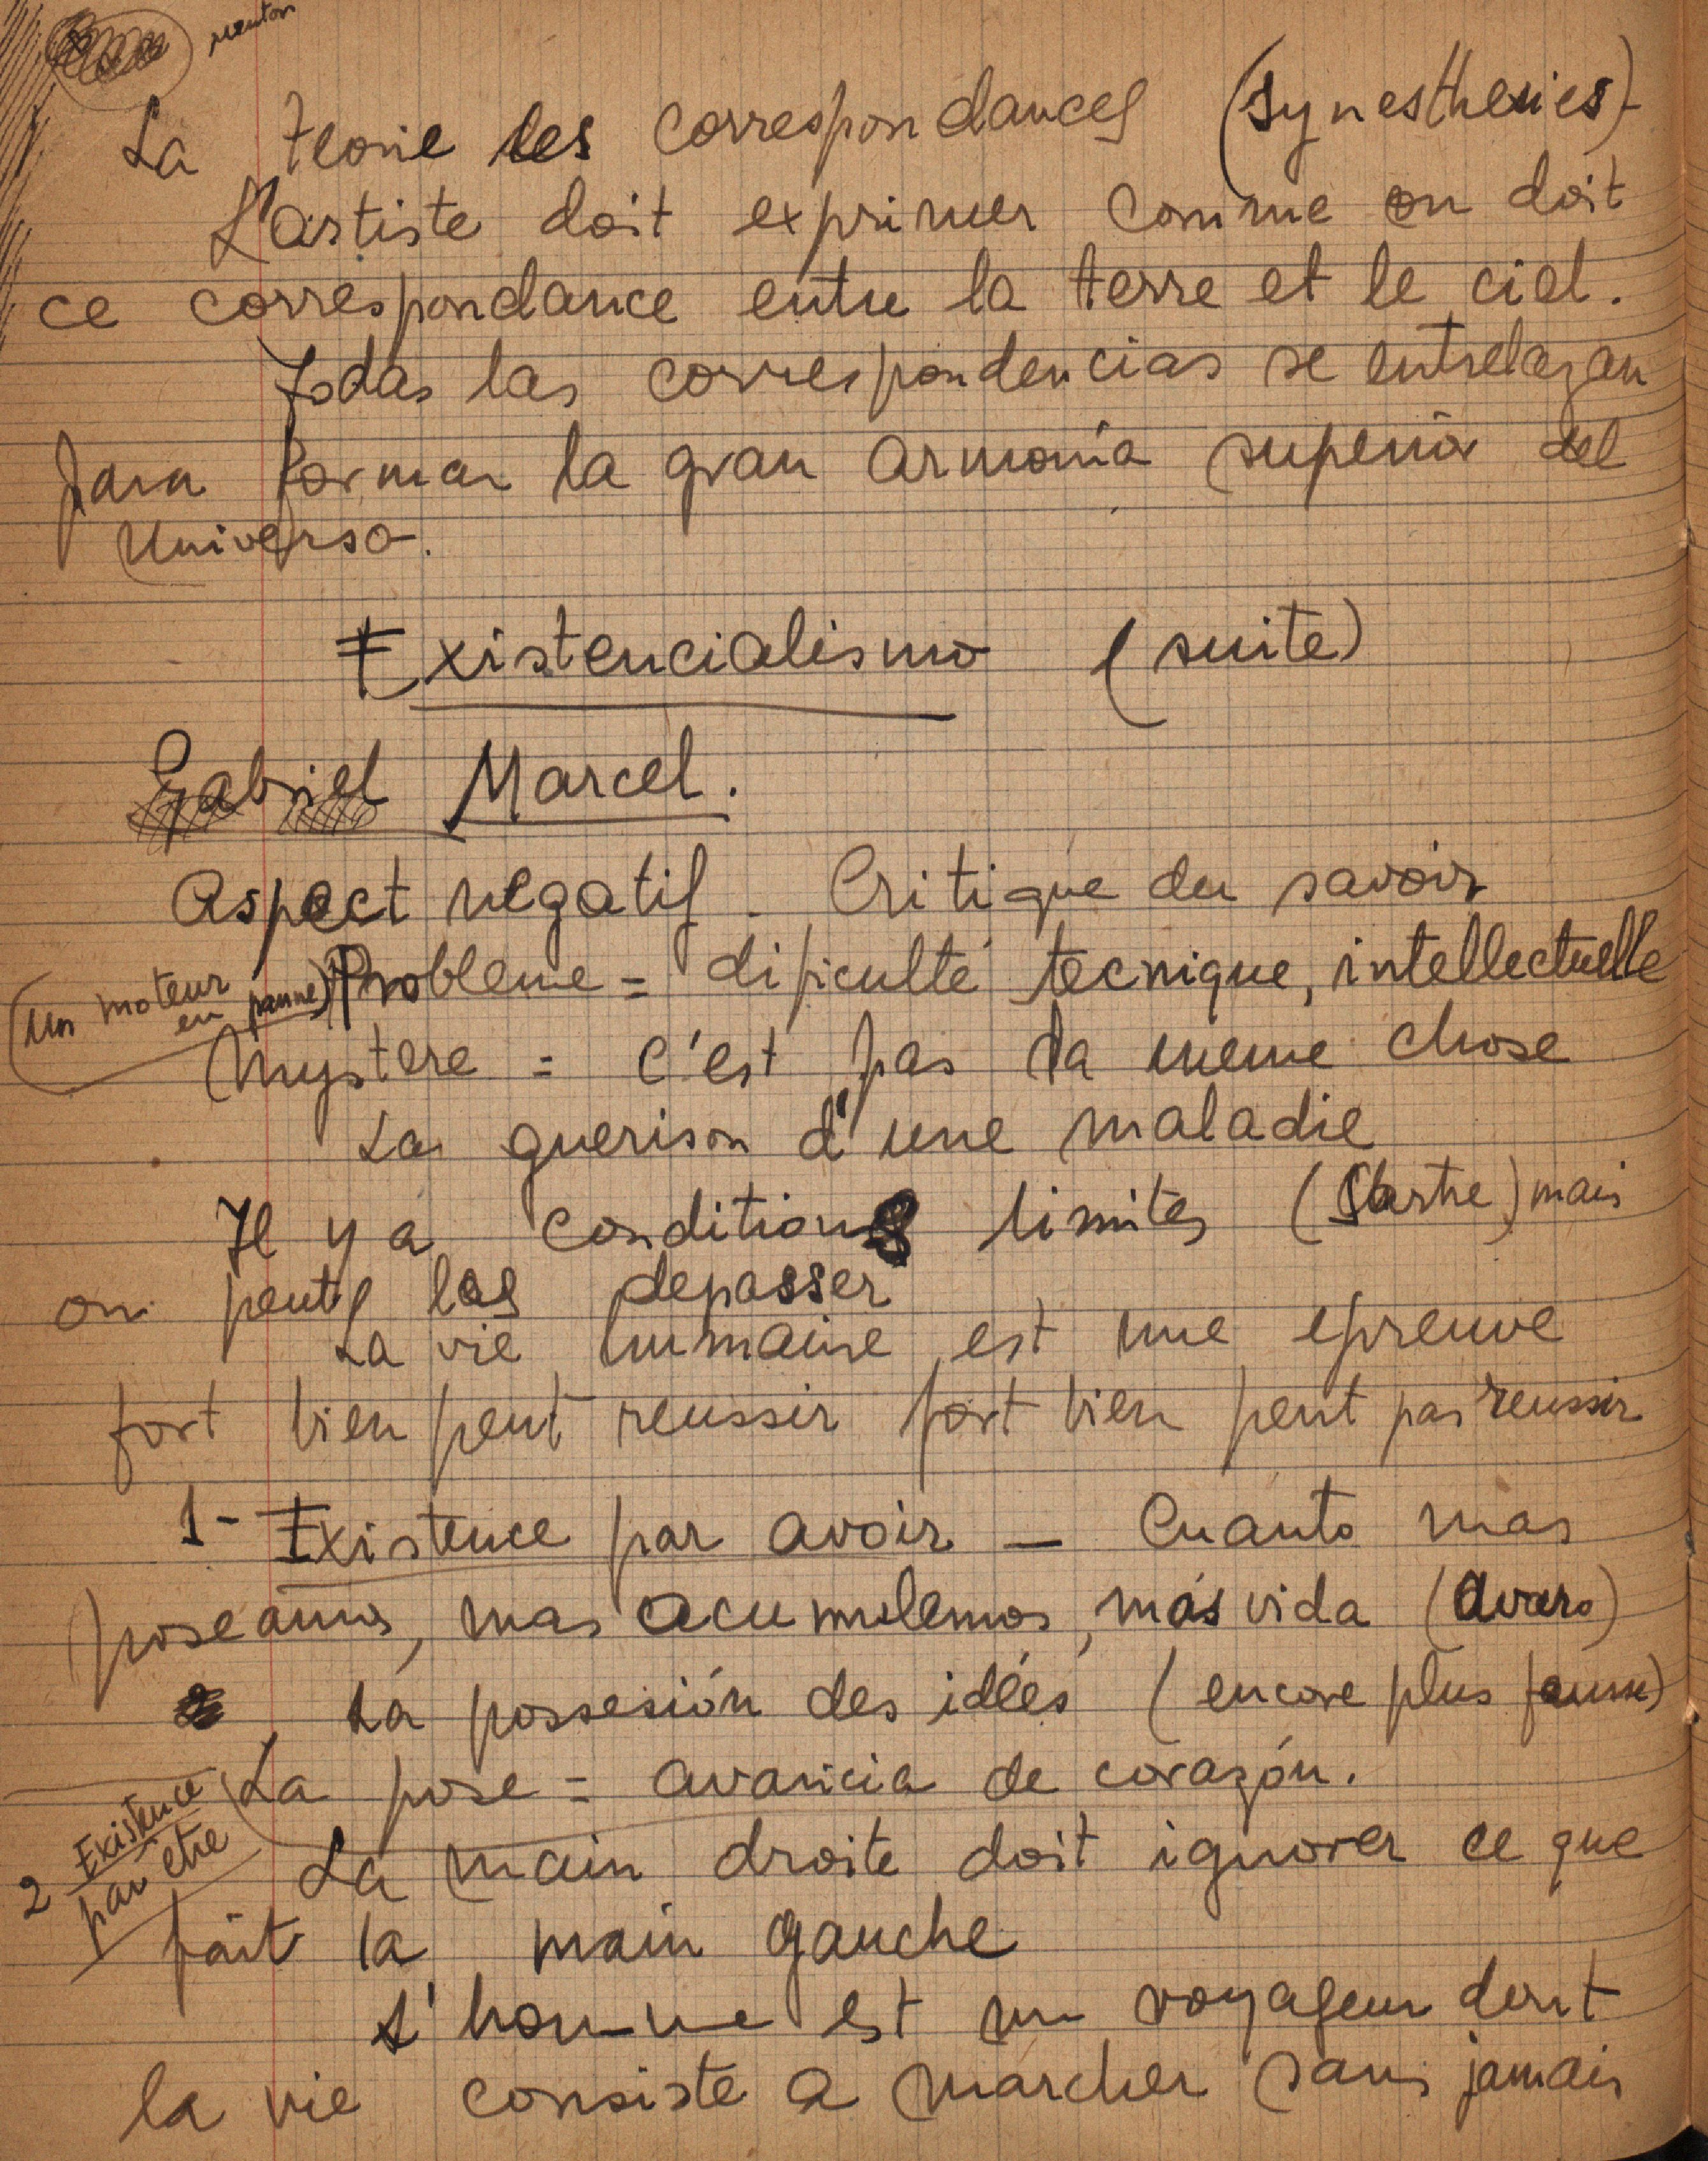 La teorie des correspondances (synesthesies)-
L'artiste doit exprimer comme on doit
ce correspondance entre la terre et le ciel.
Todas las correspondencias se entrelazan
para formar la gran armonía superior del
Universo.
Existencialismo (suite)
Gabriel Marcel.
Aspect negatif - Critique du savoir
(un moteur en panne) Probleme = dificulté tecnique, intellectuelle
Mystere = c'est pas la meme chose
La guerison d'une maladie
Il y a conditions limites (Sartre) mais
on peut les depasser
La vie humaine est une epreuve
fort bien peut reussir fort bien peut pas reussir
1- Existence par avoir - Cuanto mas
poseamos, mas acumulemos, más vida (avaro)
La possesión des idées (encore plus fausse)
La pose = avaricia de corazón.
2 Existence par etre
La main droite doit ignorer ce que
fait la main gauche
L'homme est un voyageur dont
la vie consiste a marcher sans jamais